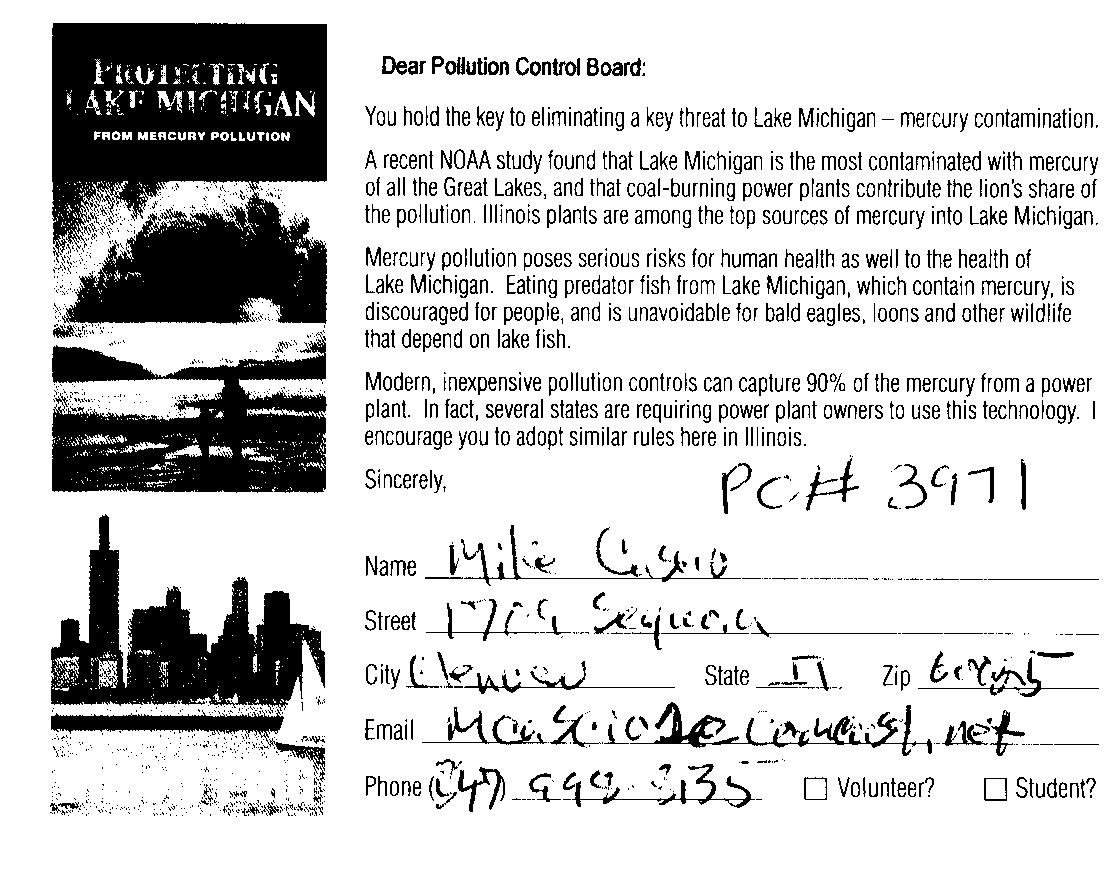 PROTECTING
LAKE MICHIGAN
FROM MERCURY POLLUTION
Dear Pollution Control Board:
You hold the key to eliminating a key threat to Lake Michigan – mercury contamination.
A recent NOAA study found that Lake Michigan is the most contaminated with mercury
of all the Great Lakes, and that coal-burning power plants contribute the lion's share of
the pollution. Illinois plants are among the top sources of mercury into Lake Michigan.
Mercury pollution poses serious risks for human health as well to the health of
Lake Michigan. Eating predator fish from Lake Michigan, which contain mercury, is
discouraged for people, and is unavoidable for bald eagles, loons and other wildlife
that depend on lake fish.
Modern, inexpensive pollution controls can capture 90% of the mercury from a power
plant. In fact, several states are requiring power plant owners to use this technology. I
encourage you to adopt similar rules here in Illinois.
Sincerely,
PC# 3971
Name Mike
Street 1709 Sequoia
City
State Il
Zip
Email
Phone (847) 998-3135
Volunteer?
Student?